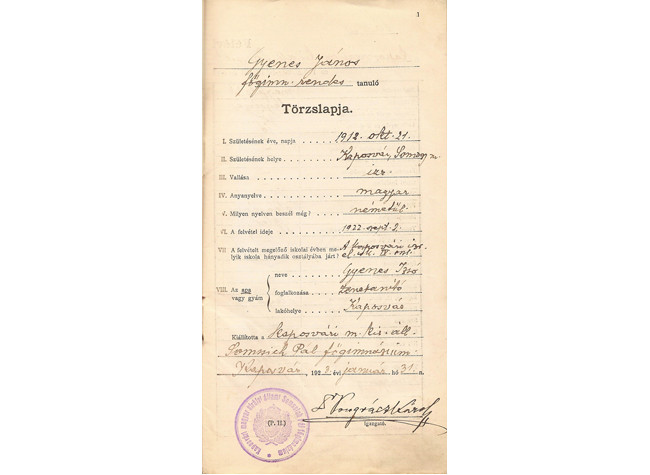 1
Gyenes János
főgimn. rendes tanuló
Törzslapja.
I. Születésének éve, napja 1912. okt. 21.
II. Születésének helye Kaposvár, Somogy m.
III. Vallása izr.
IV. Anyanyelve magyar
V. Milyen nyelven beszél még? németül.
VI. A felvétel ideje 1922. szept. 2.
VII A felvételt megelőző iskolai évben me- A kaposvári izr.
lyik iskola hányadik osztályába járt? el. isk. IV. oszt.
neve Gyenes Izsó
VIII. Az apa vagy gyám foglalkozása zenetanító
lakóhelye Kaposvár
Kiállította a Kaposvári m. kir. áll.
Somssich Pál főgimnázium
Kaposvár, 192 évi január hó 31-n.
(P. H.)
igazgató.